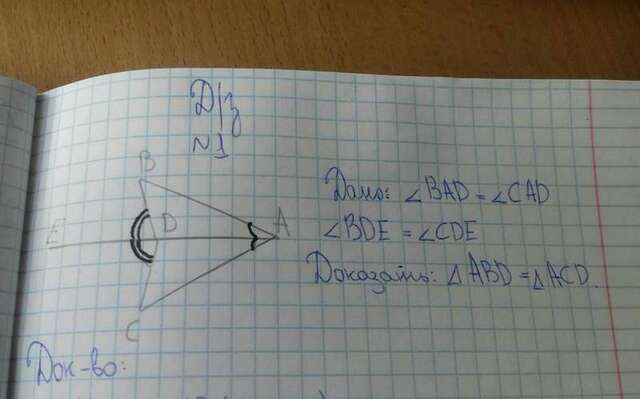 Д/з
№1
B
Дано: ∠BAD = ∠CAD
E D A
∠BDE = ∠CDE
Доказать: △ABD = △ACD.
C
Док-во: